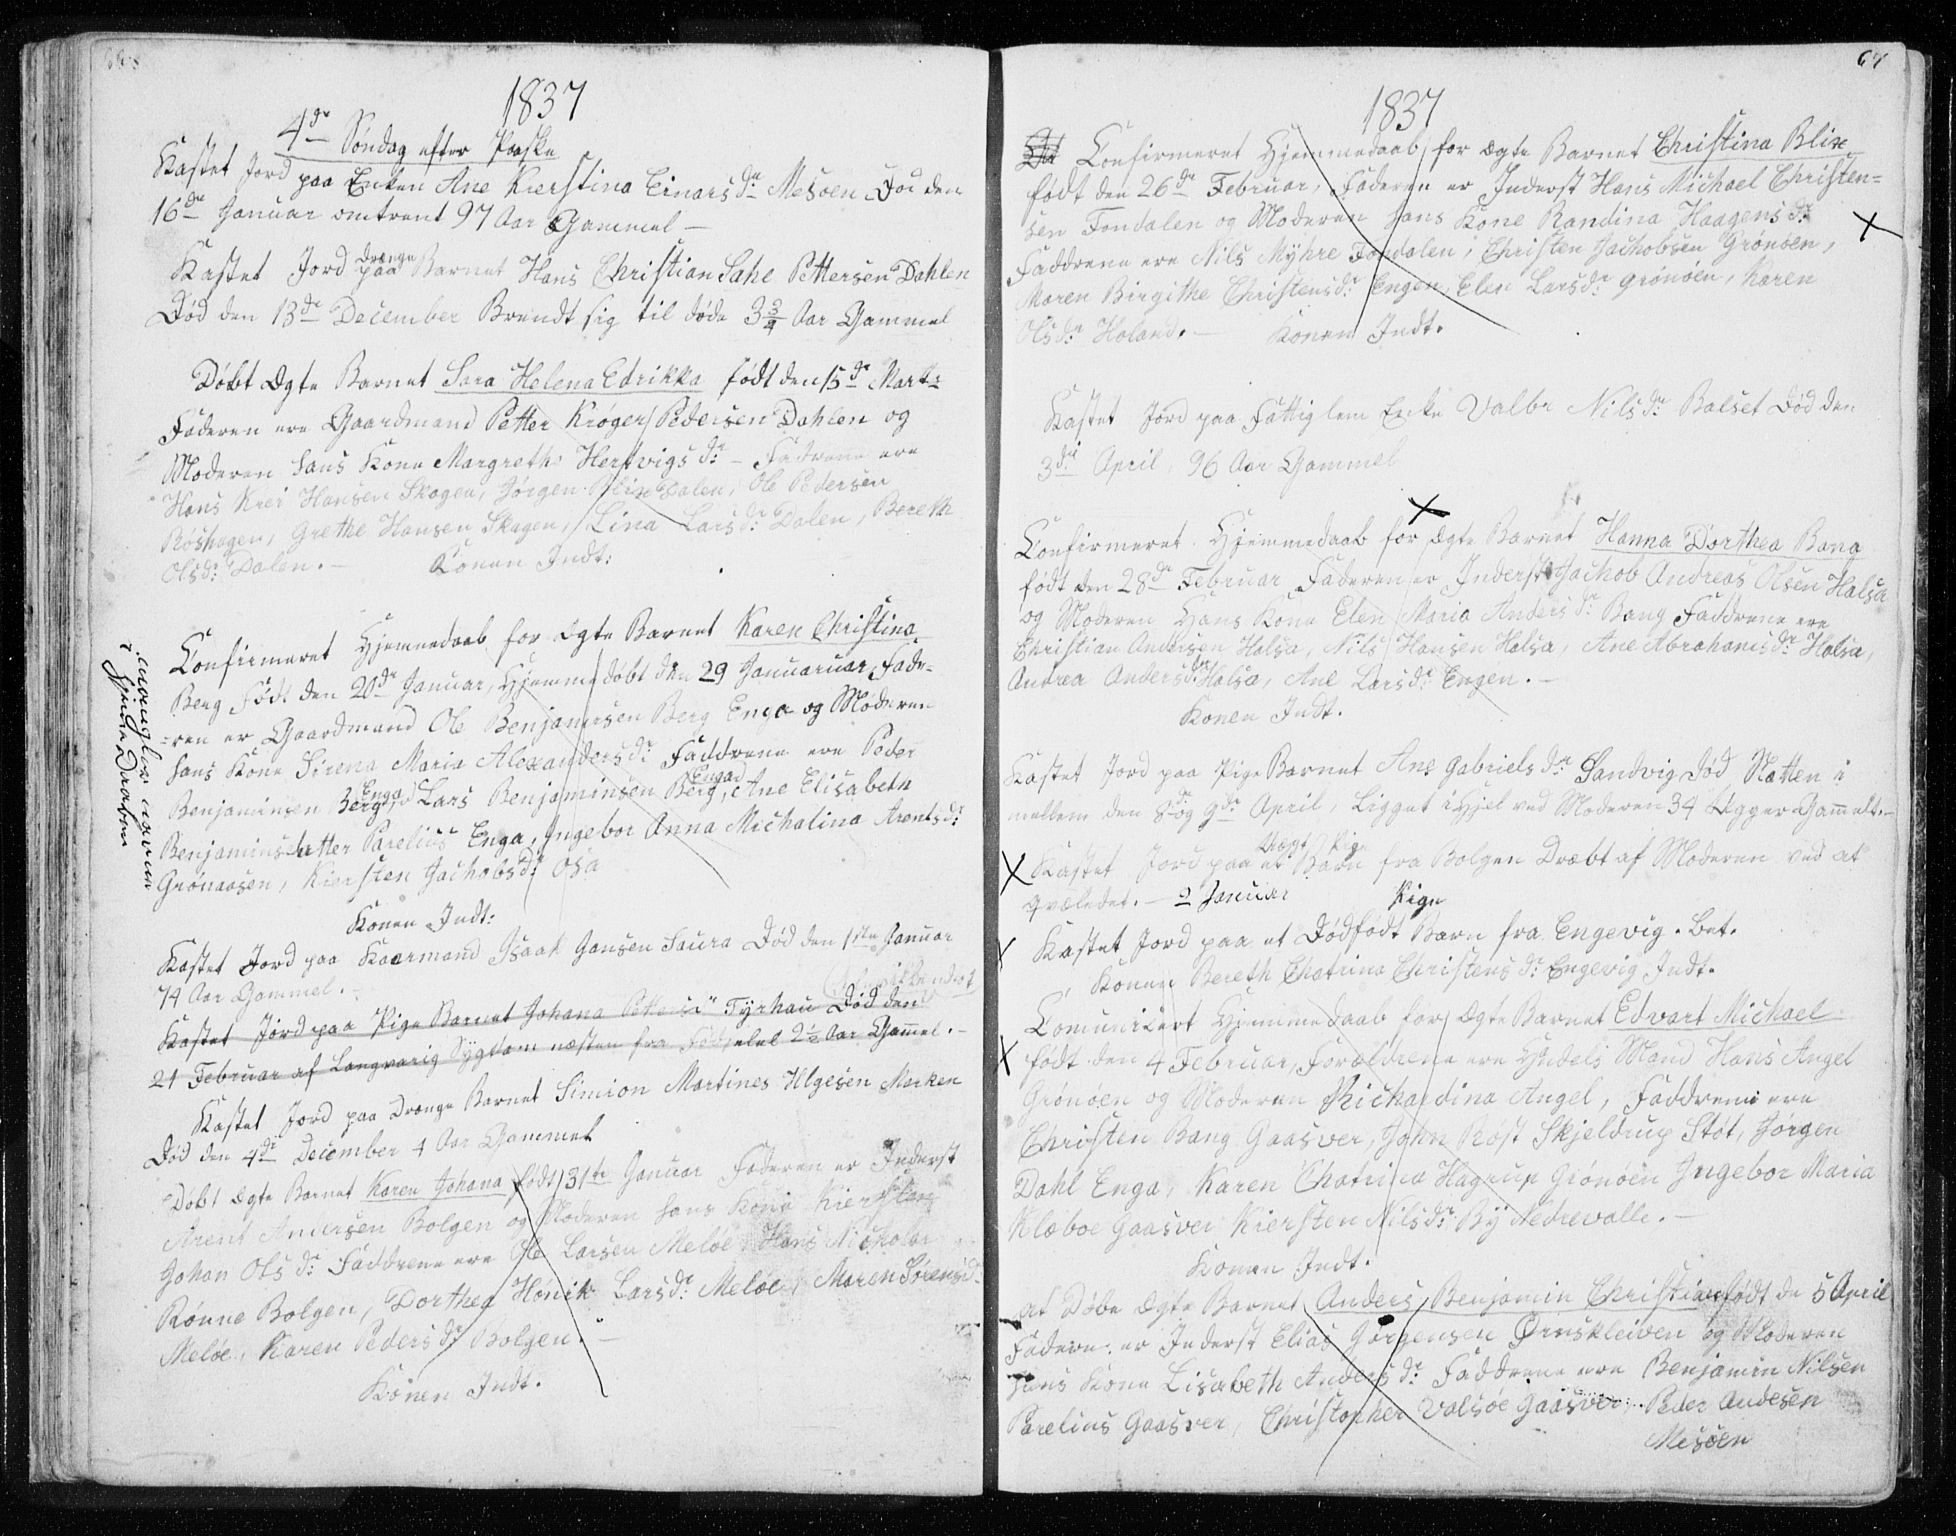 1837
4de Søndag efter Paaske
Kastet Jord paa Enken Ane Kierstina Einarsdr Mesøen Død den
16de Januar omtrent 97 Aar Gammel —
Kastet Jord paa Drenge Barnet Hans Christian Sahl Pettersen Dahlen
Død den 13de December Brændt sig til døde 3 3/4 Aar Gammel
Døbt Ægte Barnet Sara Helena Edrikka født den 15de Marts
Faderen ere Gaardmand Petter Krøger Pedersen Dahlen og
Moderen hans Kone Margrethe Hertvigsdr — Fadrene ere
Hans Krei Hansen Skagen, Jørgen Blix Dalen, Ole Pedersen
Røshagen, Grethe Hansen Skagen, Lina Larsdr Dalen, Bereth
Olsdr Dalen. — Konen Indt:
Confirmeret Hjemmedaab for Ægte Barnet Karen Christina
Berg Født den 20de Januar, Hjemmedøbt den 29 Januaruar, Fade-
=ren er Gaardmand Ole Benjaminsen Berg Enga og Moderen
hans Kone Sirena Maria Alexandersdr Faddrene ere Peder
Benjaminsen Berg Enga, Lars Benjaminsen Berg Engad, Ane Elisabeth
Benjaminsdatter Parelius Enga, Ingebor Anna Michalina Arentsdr
Grønaasen, Kiersten Jachobsdr Osa
Konen Indt:
i hjemme Daaben
Kastet Jord paa Kaarmand Isaak Jansen Saura Død den 1ste Januar
74 Aar Gammel. —
Kastet Jord paa Pige Barnet Johana Tyrhau Død den
21 Februar af Langvarig Sygdom næsten fra Fødselel 2½ Aar Gammel. —
Kastet Jord paa Drenge Barnet Simion Martines Ulgesen Marken
Død den 4de December 4 Aar Gammel
Døbt Ægte Barnet Karen Johana født 31te Januar Faderen er Inderst
Arent Andersen Bolgen og Moderen hans Kone Kiersten
Johan Olsdr Faddrene ere Ole Larsen Meløe, Hans Nicholai
Rønne Bolgen, Dorthea Hønik Larsdr Meløe, Maren Sørensdr
Meløe, Karen Pedersdr Bolgen. —
Konen Indt.
67
1837
Confirmeret Hjemmedaab for Ægte Barnet Christina Blix
født den 26de Februar, Faderen er Inderst Hans Michael Christen=
sen Fondalen og Moderen hans Kone Randina Haagensdr
Faddrene ere Nils Myhre Fondalen, Christen Jachobsen Grønøen,
Maren Birgithe Christensdr Engen, Elen Larsdr Grønøen, Karen
Olsdr Holand. — Konen Indt.
Kastet Jord paa Fattiglem Enke Valbr Nilsdr Balset Død den
3die April, 96 Aar Gammel
Confirmeret Hjemmedaab for Ægte Barnet Hanna Dorthea Bang
født den 28de Februar Faderen er Inderst Jachob Andreas Olsen Halsa
og Moderen Hans Kone Elen Maria Andersdr Bang Faddrene ere
Christian Andersen Halsa, Nils Hansen Halsa, Ane Abrahamsdr Halsa,
Andrea Andersdr Halsa, Ane Larsdr Engen. —
Konen Indt.
Kastet Jord paa Pige Barnet Ane Gabrielsdr Sandvig Død Natten i
mellem den 8de og 9de April, Ligget ihjel ved Moderen 34 Uger Gamelt. —
Kastet Jord paa et Uægt Pige Barn fra Bolgen Dræbt af Moderen ved at
qvæledet. — 2 Januar
Kastet Jord paa et Dødfødt Pige Barn fra Engevig. Bet.
Konen Bereth Chatrina Christensdr Engevig Indt.
Comunicert Hjemmedaab for Ægte Barnet Edvart Michael
født den 4 Februar, Forældrene ere Handels Mand Hans Angel
Grønøen og Moderen Richardina Angel, Faddrene ere
Christen Bang Gaasver, John Røst Skjeldrup Støt, Jørgen
Dahl Enga, Karen Chatrina Hagrup Grønøen Ingebor Maria
Klæboe Gaasver Kiersten Nilsdr By Nedrevalle. —
Konen Indt.
at Døbe Ægte Barnet Anders Benjamin Christian født de 5 April
Fadern er Inderst Elias Jørgensen Ørnskleiven og Moderen
hans Kone Lisabeth Andersdr Faddrene ere Benjamin Nilsen
Parelius Gaasver, Christopher Valsøe Gaasver, Peder Andesen
Mesøen